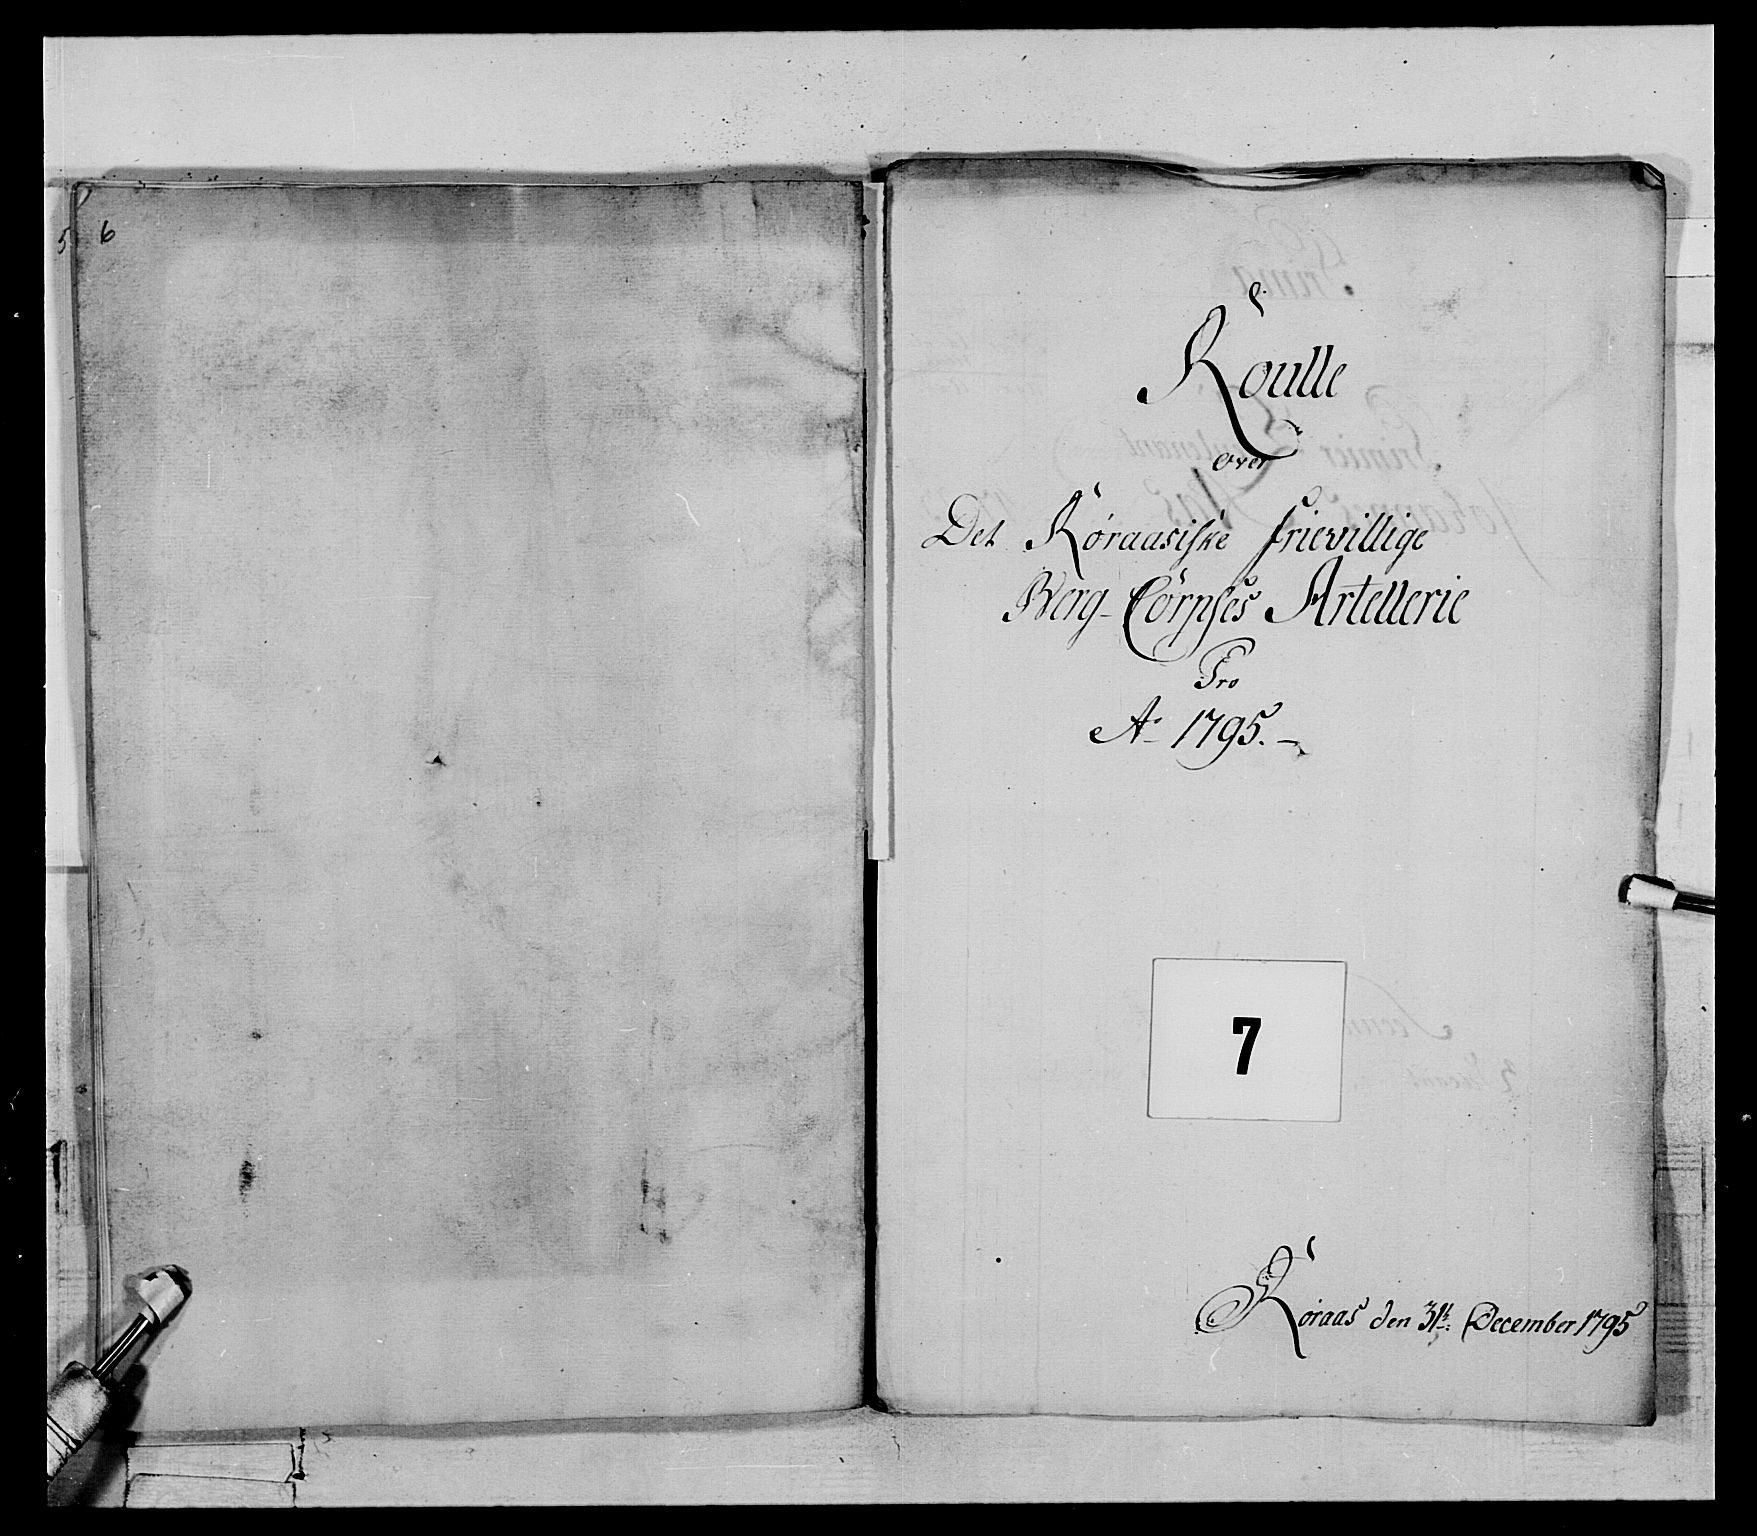 5 6
Roulle
over
Det Røraasiske frievillige
Berg-Corpses Artellerie
Pro
Ao 1795.
7
Røraas den 31te December 1795